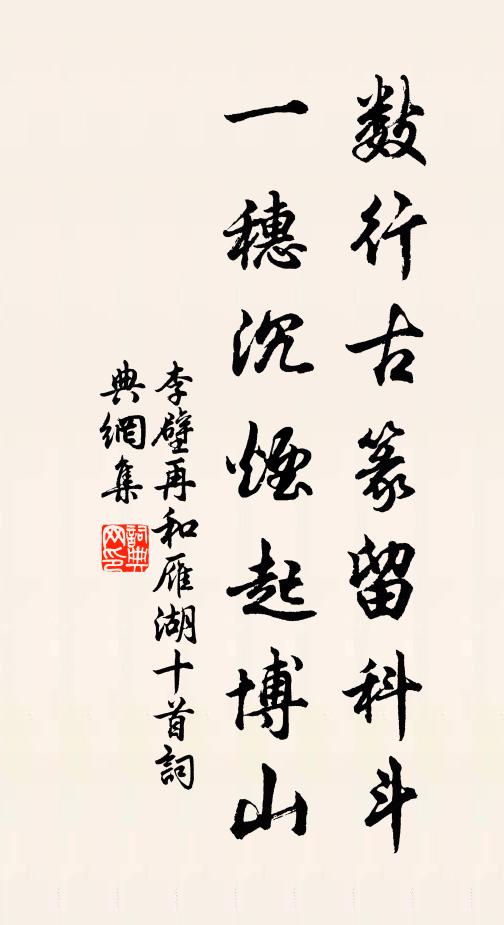 数行古篆留科斗
一穗沉煙起博山
李壁再和雁湖十首詞
典網集
詞典網印